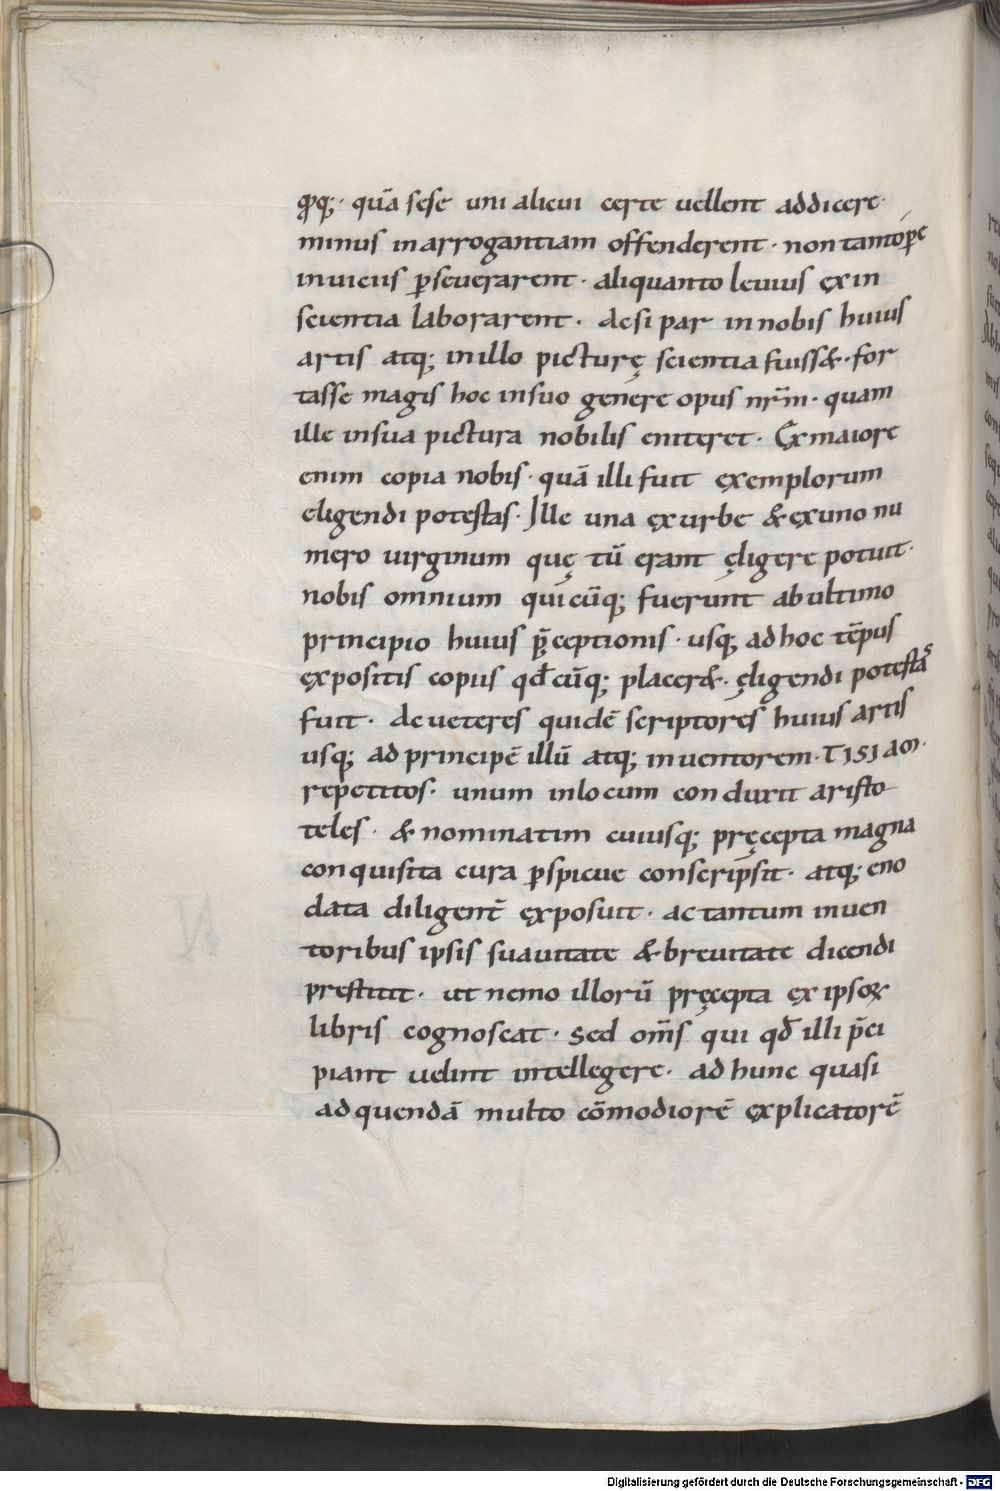 ꝓq; · quā sese uni alicui certe uellent addicere·
minus inarrogantiam offenderent · non tantoꝑe
inuiciis ꝑseuerarent · aliquanto leuius ęxin
scientia laborarent · Acsi par innobis huius
artis atq; inillo picturę scientia fuiss& · for
tasse magis hoc insuo genere opus nr̄m · quam
ille insua pictura nobilis eniteret · Exmaiore
enim copia nobis · quā illi fuit ęxemplorum
eligendi potestas · Ille una ęxurbe & ęxuno nu
mero uirginum quę tū erant ęligere potuit ·
nobis omnium quicūq; fuerunt abultimo
principio huius p̄ceptionis · usq; adhoc tēpus
ęxpositis copiis qđcūq; placer& · ęligendi potestas
fuit · Ac ueteres quidē scriptores huius artis
usq; ad principē illū atq; inuentorem · TISIAM ·
repetitos · unum inlocum conduxit aristo
teles · & nominatim cuiusq; pręcepta magna
conquisita cura ꝑspicue conscripsit · atq; eno
data diligent̄ ęxposuit · ac tantum inuen
toribus ipsis suauitate & breuitate dicendi
prestitit · ut nemo illorū pręcepta ęx ipsoꝝ
libris cognoscat · sed om̄s qui qđ illi p̄ci
piant uelint intellegere · ad hunc quasi
ad quendā multo cōmodiorē ęxplicatorē
Digitalisierung gefördert durch die Deutsche Forschungsgemeinschaft · DFG